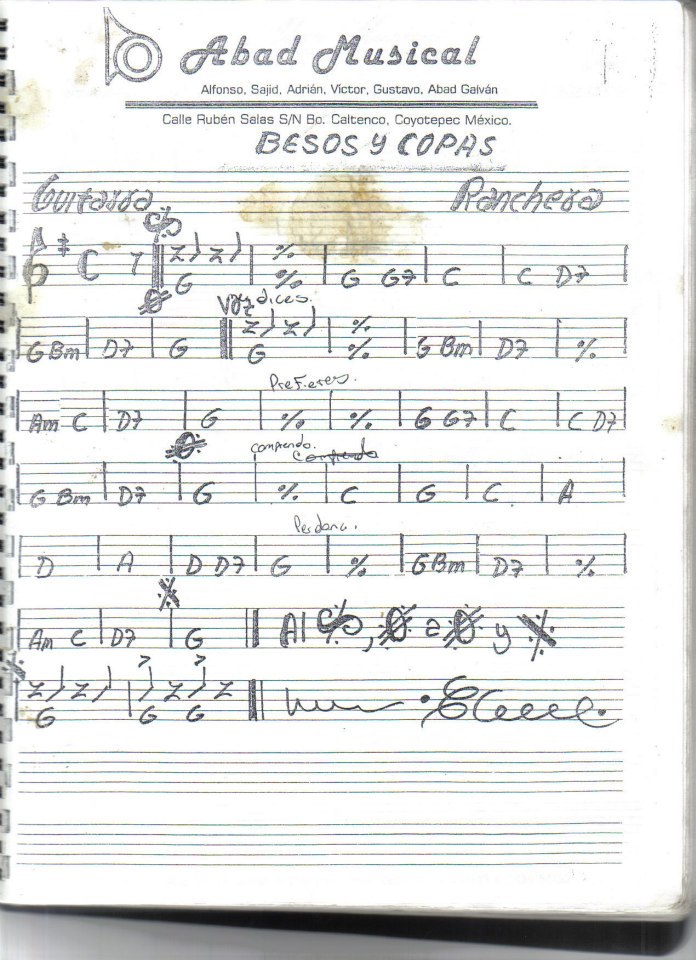 Abad Musical
Alfonso, Sajid, Adrián, Víctor, Gustavo, Abad Galván
Calle Rubén Salas S/N Bo. Caltenco, Coyotepec México.
BESOS Y COPAS
Guitarra Ranchera
C 7 G % G G7 C C D7
Voz dices.
G Bm D7 G G % G Bm D7 %
Prefieres.
Am C D7 G % % G G7 C C D7
comprendo. Comprendo
G Bm D7 G % C G C A
Perdona.
D A D D7 G % G Bm D7 %
Am C D7 G Al , a y
G G G